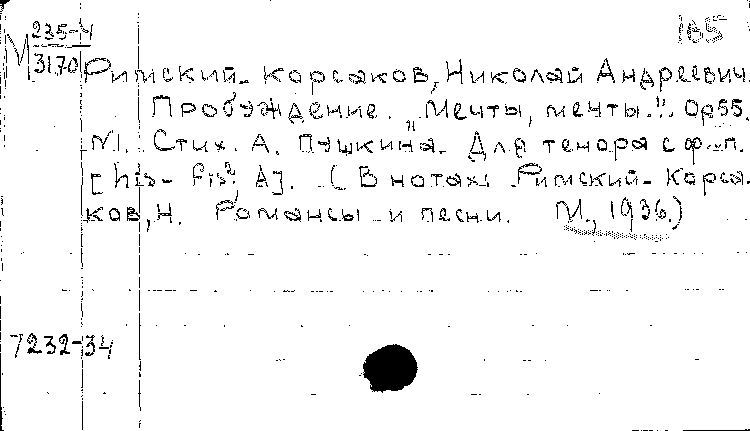 165
М 235-4
3170
Римский-Корсаков, Николай Андреевич.
Пробуждение. „Мечты, мечты.." Op 55.
N1. Стих. А. Пушкина. Для тенора с ф.-п.
(В нотах: Римский-Корса-
ков, Н. Романсы и песни. М., 1936.)
7232-34